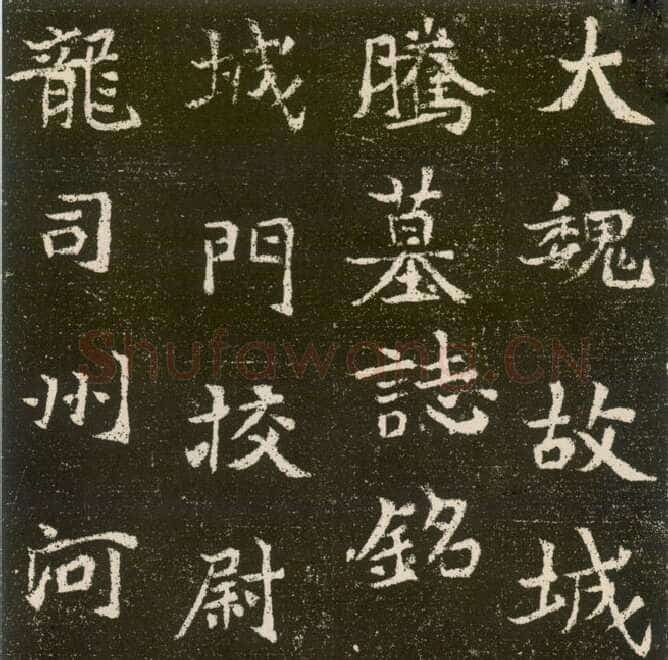 大魏故城
騰墓誌銘
城門挍尉
龍司州河
Shufawang.CN